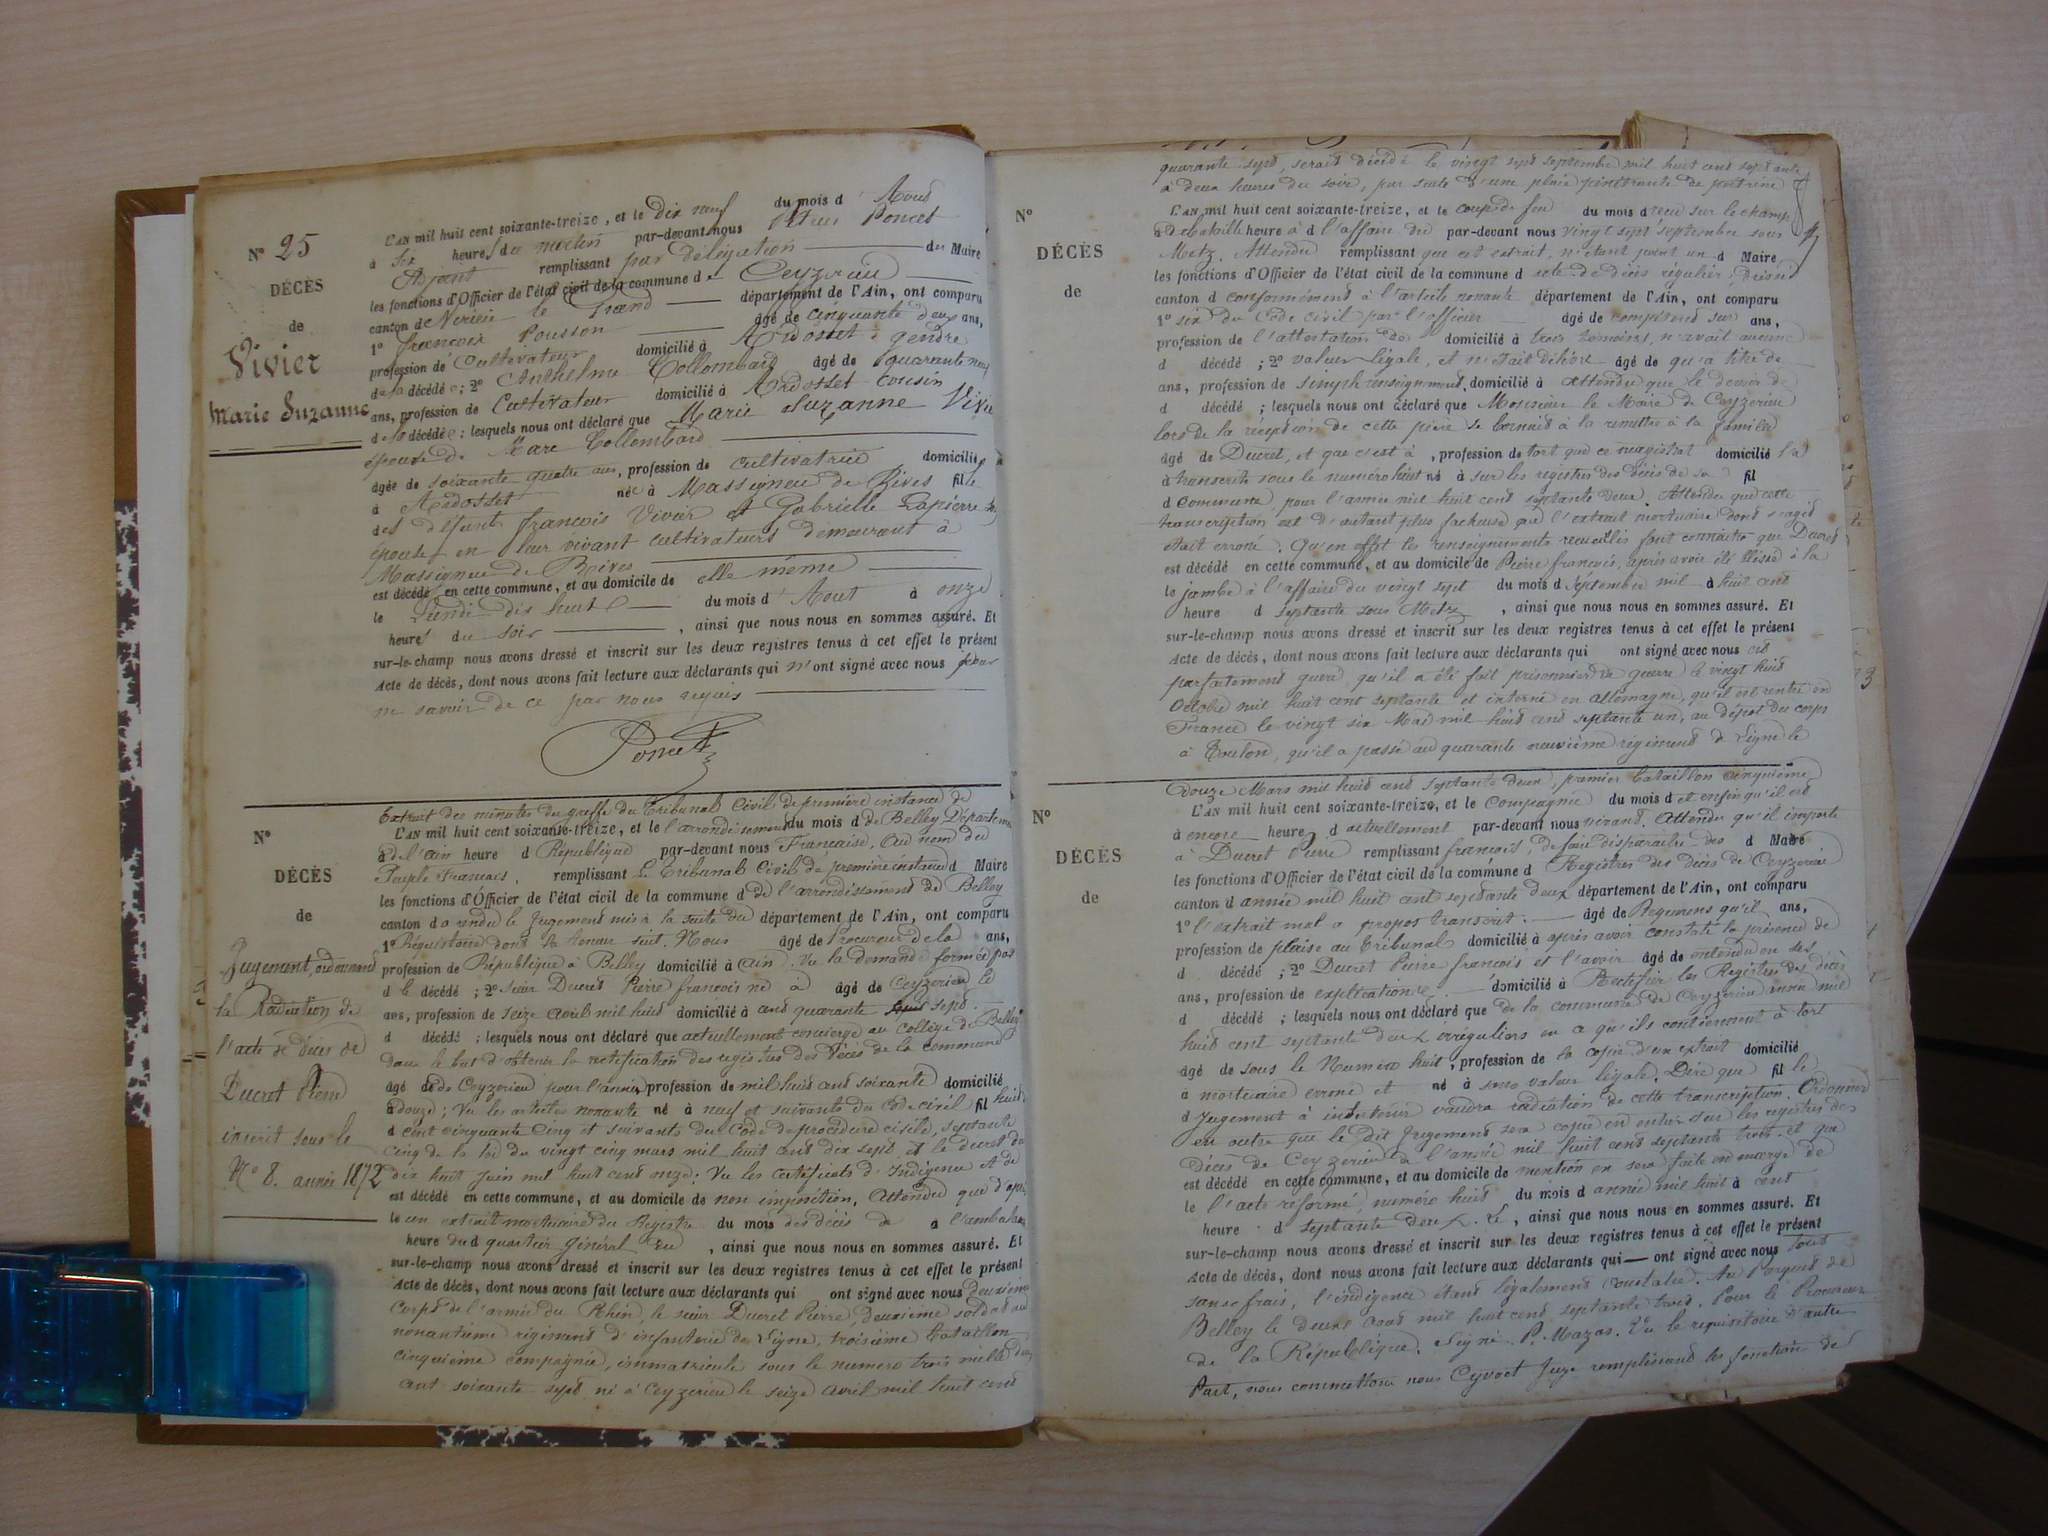 N° 25
DÉCÈS
de
Vivier
Marie Suzanne
L'AN mil huit cent soixante-treize, et le Dix neuf du mois d'Aout
à six heures du matin par-devant nous Petrus Poncet
Adjoint remplissant par délégation du Maire
les fonctions d'Officier de l'état civil de la commune de Ceyzerieu
canton de Virieu le Grand département de l'Ain, ont comparu
1° françois Pousson âgé de cinquante deux ans,
profession de Cultivateur domicilié à Ardosset gendre
de la décédée; 2° Anthelme Collombard âgé de quarante neuf
ans, profession de Cultivateur domicilié à Ardosset cousin
de la décédée; lesquels nous ont déclaré que Marie Suzanne Vivier
épouse de Marc Collombard
âgée de soixante quatre ans, profession de cultivatrice domiciliée
à Ardosset née à Massignieu de Rives fille
des défunts françois Vivier et Gabrielle Lapierre
épouse en leur vivant cultivateurs demeurant à
Massignieu de Rives
est décédée en cette commune, et au domicile de elle même
le Lundi dix huit du mois d'Aout à onze
heures du soir, ainsi que nous nous en sommes assuré. Et
sur-le-champ nous avons dressé et inscrit sur les deux registres tenus à cet effet le présent
acte de décès, dont nous avons fait lecture aux déclarants qui n'ont signé avec nous pour
ne savoir de ce par nous requis
Poncet
N°
DÉCÈS
de
Jugement, ordonnant
la Radiation de
l'acte de décès de
Ducret Pierre
inscrit sous le
N° 8. année 1872
Extrait des minutes du greffe du Tribunal Civil de première instance de
L'AN mil huit cent soixante-treize, et le l'arrondissement du mois d de Belley Département
à de l'Ain heure d République par-devant nous Française, Au nom du
Peuple Français. remplissant Le Tribunal Civil de première instance d Maire
les fonctions d'Officier de l'état civil de la commune d de l'arrondissement de Belley
canton d a rendu le Jugement mis à la suite du département de l'Ain, ont comparu
1° Réquisitoire dont la teneur suit. Nous âgé de Procureur de la ans,
profession de République à Belley domicilié à Ain. Vu la demande formée par
d le décédé; 2° sieur Ducret Pierre françois né à âgé de Ceyzerieu le
ans, profession de seize avril mil huit domicilié à cent quarante sept
d décédé; lesquels nous ont déclaré que actuellement concierge au collège de Belley
dans le but d'obtenir la rectification des registres des décès de la commune
âgé de de Ceyzerieu pour l'année profession de mil huit cent soixante domicilié
à douze; Vu les articles nonante né à neuf et suivants du Code civil fil huit
d cent cinquante cinq et suivants du Code de procédure civile, septante
cinq de la loi du vingt cinq mars mil huit cent dix sept, et le décret du
dix huit Juin mil huit cent onze; Vu les certificats d'Indigence et de
est décédé en cette commune, et au domicile de non imposition. Attendu que d'après
le un extrait mortuaire du Registre du mois des décès de à l'ambulance
heure du d quartier Général du, ainsi que nous nous en sommes assuré. Et
sur-le-champ nous avons dressé et inscrit sur les deux registres tenus à cet effet le présent
acte de décès, dont nous avons fait lecture aux déclarants qui ont signé avec nous deuxième
corps de l'armée du Rhin, le sieur Ducret Pierre, deuxième soldat au
nonantième régiment d'infanterie de Ligne, troisième bataillon
cinquième compagnie, immatriculé sous le numéro trois mille deux
cent soixante sept, né à Ceyzerieu le seize avril mil huit cent
quarante sept, serait décédé le vingt sept septembre mil huit cent septante
à deux heures du soir, par suite d'une plaie pénétrante de poitrine
N°
DÉCÈS
de
L'AN mil huit cent soixante-treize, et le coup de feu du mois d reçu sur le champ
à de bataille heure à d l'affaire du par-devant nous vingt sept septembre sous
Metz. Attendu remplissant que cet extrait, n'étant point un d Maire
les fonctions d'Officier de l'état civil de la commune d acte de décès régulier, dressé
canton d conformément à l'article nonante département de l'Ain, ont comparu
1° six du Code civil par l'officier âgé de compétent sur ans,
profession de l'attestation de domicilié à trois témoins, n'avait aucune
d décédé; 2° valeur légale, et n'était délivré âgé de qu'à titre de
ans, profession de simple renseignement. domicilié à Attendu que le devoir de
d décédé; lesquels nous ont déclaré que Monsieur le Maire de Ceyzerieu
lors de la réception de cette pièce se bornait à la remettre à la famille
âgé de Ducret, et que c'est à, profession de tort que ce magistrat domicilié l'a
à transcrite sous le numéro huit né à sur les registres des décès de sa fil
d commune, pour l'année mil huit cent septante deux. Attendu que cette
transcription est d'autant plus facheuse que l'extrait mortuaire dont s'agit
était erroné. Qu'en effet les renseignements recueillis font connaître que Ducret
est décédé en cette commune, et au domicile de Pierre françois, après avoir été blessé à la
le jambe à l'affaire du vingt sept du mois d septembre mil à huit cent
heure d septante sous Metz, ainsi que nous nous en sommes assuré. Et
sur-le-champ nous avons dressé et inscrit sur les deux registres tenus à cet effet le présent
acte de décès, dont nous avons fait lecture aux déclarants qui ont signé avec nous est
parfaitement guéri, qu'il a été fait prisonnier de guerre le vingt huit
Octobre mil huit cent septante et interné en Allemagne, qu'il est rentré en
France le vingt six Mai mil huit cent septante un, au dépôt du corps
à Toulon, qu'il a passé au quarante neuvième régiment de Ligne le
N°
DÉCÈS
de
douze Mars mil huit cent septante deux, premier bataillon cinquième
L'AN mil huit cent soixante-treize, et le compagnie du mois d et enfin qu'il est
à encore heure d actuellement par-devant nous vivant. Attendu qu'il importe
à Ducret Pierre remplissant françois, de faire disparaître des d Maire
les fonctions d'Officier de l'état civil de la commune d Registres des décès de Ceyzerieu
canton d année mil huit cent septante deux département de l'Ain, ont comparu
1° l'extrait mal a propos transcrit. âgé de Requerons qu'il ans,
profession de plaise au Tribunal domicilié à après avoir constaté la présence de
d décédé; 2° Ducret Pierre françois et l'avoir âgé de entendu en ses
ans, profession de explications. domicilié à Rectifier les Registres des décès
d décédé; lesquels nous ont déclaré que de la commune de Ceyzerieu année mil
huit cent septante deux irréguliers en ce qu'ils contiennent à tort
âgé de sous le Numéro huit, profession de la copie d'un extrait domicilié
à mortuaire erroné et né à sans valeur légale. Dire que fil le
d Jugement à intervenir vaudra radiation de cette transcription. Ordonner
en outre que le dit Jugement sera copié en entier sur les registres des
Décès de Ceyzerieu de l'année mil huit cent septante trois. et que
est décédé en cette commune, et au domicile de mention en sera faite en marge de
le l'acte réformé, numéro huit du mois d année mil huit à cent
heure d septante deux. Le, ainsi que nous nous en sommes assuré. Et
sur-le-champ nous avons dressé et inscrit sur les deux registres tenus à cet effet le présent
acte de décès, dont nous avons fait lecture aux déclarants qui — ont signé avec nous tout
sans frais, l'indigence étant légalement constatée. Au Parquet de
Belley le Aout mil huit cent septante trois. Pour le Procureur
de la République. Signé P. Mazas. Vu le requisitoire d'autre
Part, nous commettons nous Cyvoct Juge remplissant les fonctions de